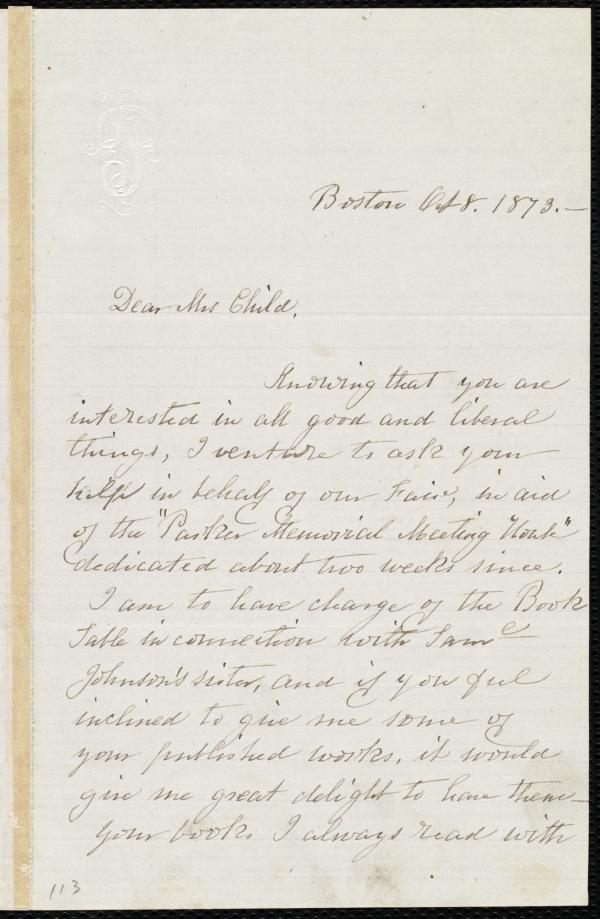 Boston Oct 8. 1873.—
Dear Mrs Child,
Knowing that you are
interested in all good and liberal
things, I venture to ask your
help in behalf of our Fair, in aid
of the "Parker Memorial Meeting House"
dedicated about two weeks since.
I am to have charge of the Book
Table in connection with Saml
Johnson's sister, and if you feel
inclined to give me some of
your published works, it would
give me great delight to have them—
Your books I always read with
113